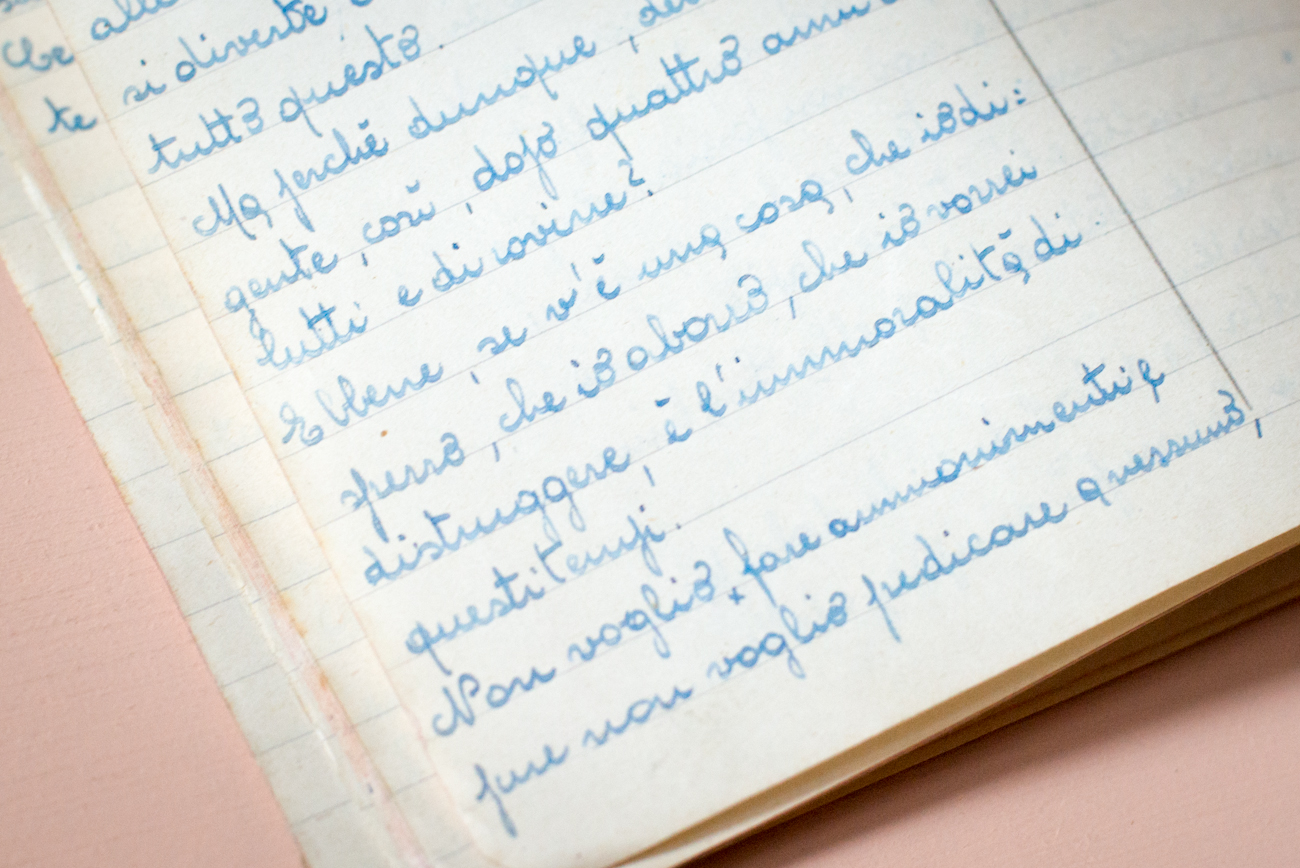 te
si diverte
tutto questo.
Ma perché dunque,
gente, così, dopo quattro anni
lutti e di rovine?
Ebbene, se v'è una cosa, che io di:
sperro, che io aborrõ, che io vorrei
distruggere, è l'immoralità di
questi tempi.
Non voglio fare ammonimenti e
pure non voglio predicare a nessuno,